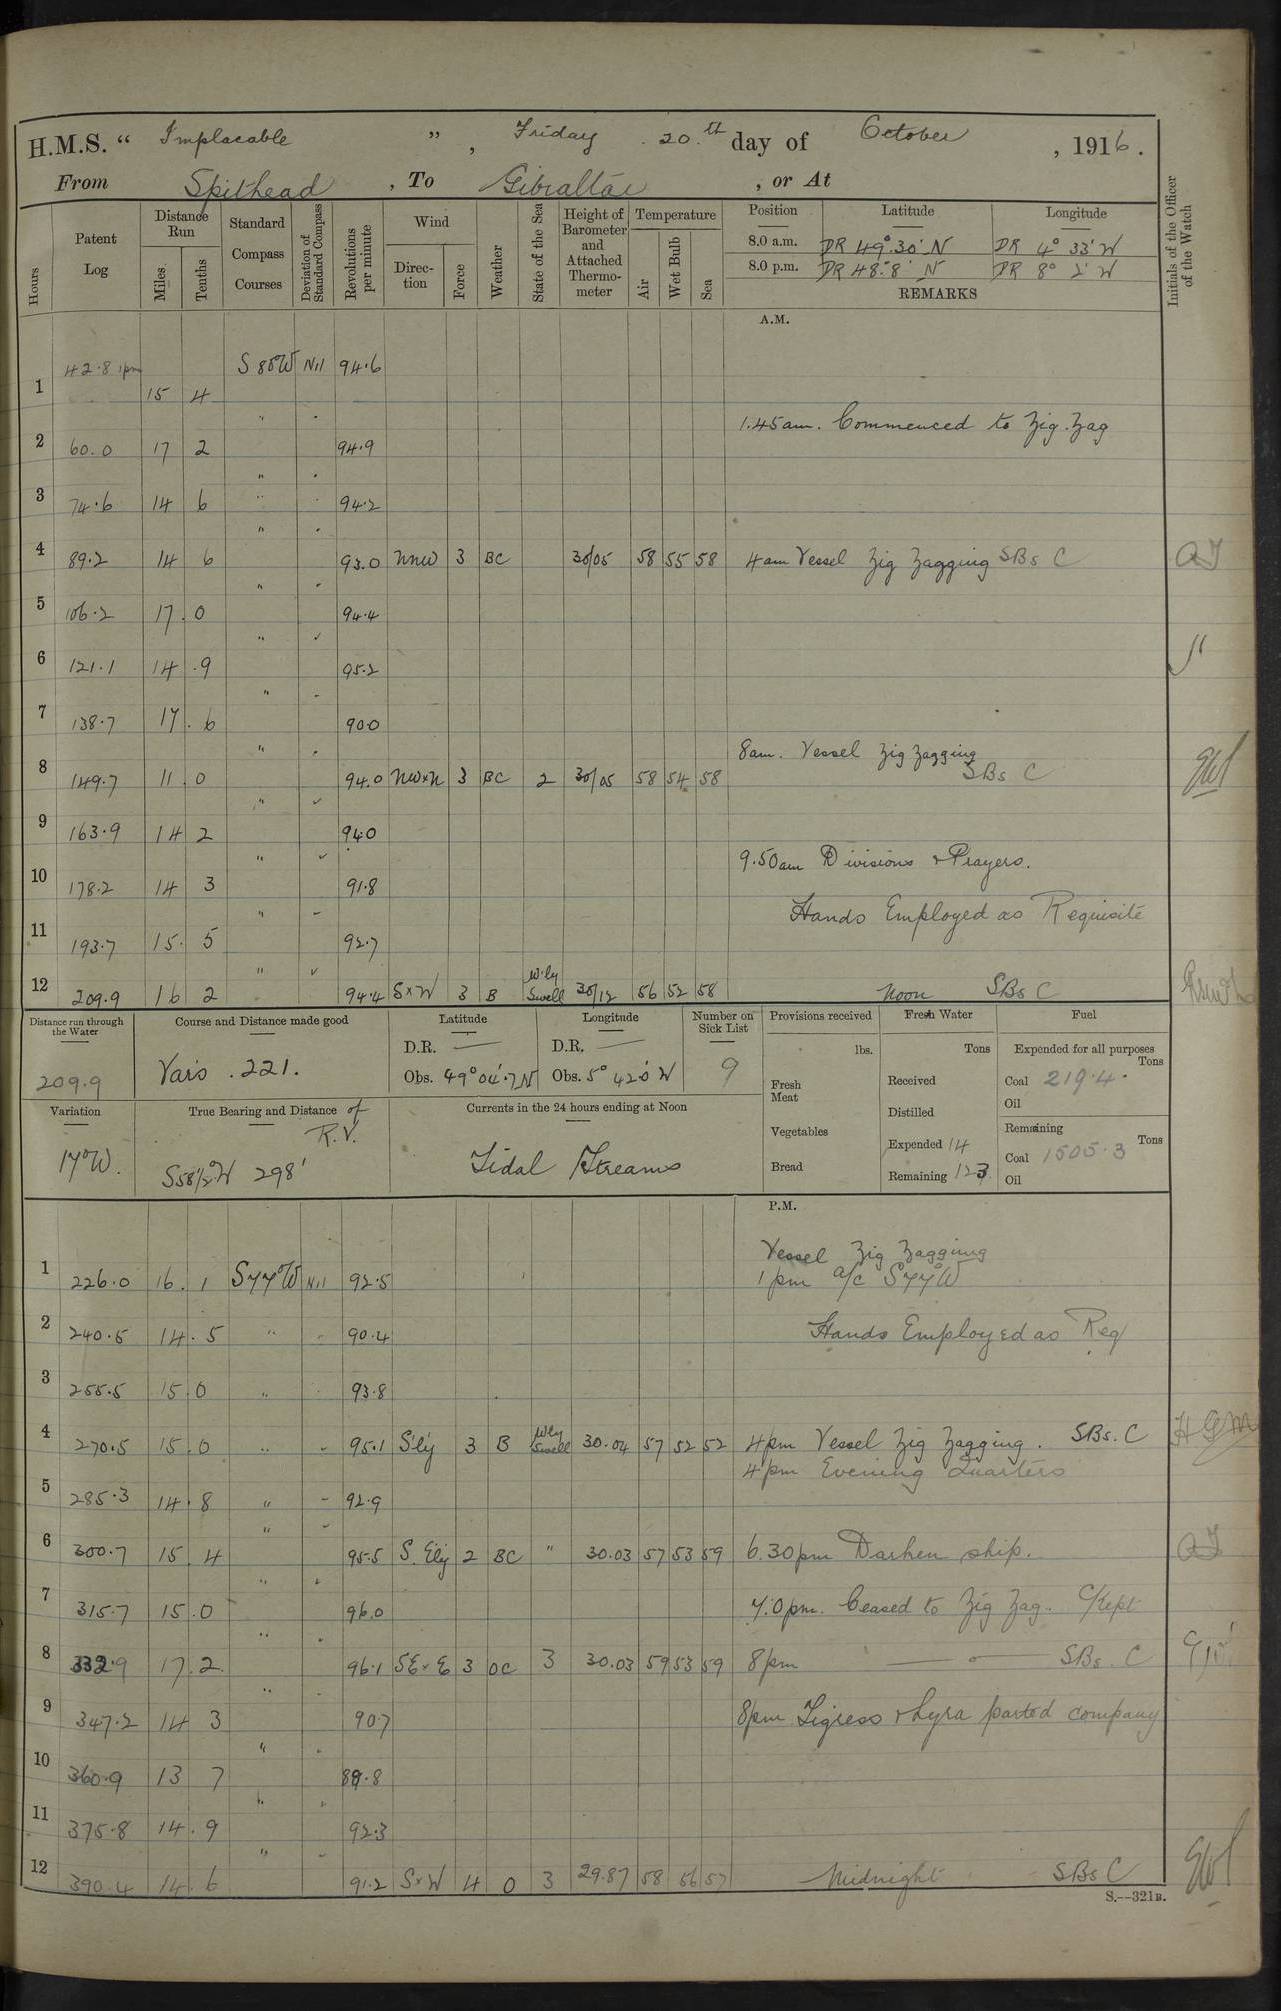 H.M.S. “ Implacable ” , Friday 20th day of October , 1916.
From Spithead , To Gibraltar , or At
Hours
Patent Log
Distance Run
Miles. Tenths
Standard Compass Courses
Deviation of Standard Compass
Revolutions per minute
Wind
Direc-tion Force
Weather
State of the Sea
Height of Barometer and Attached Thermo-meter
Temperature
Air Wet Bulb Sea
Position Latitude Longitude
8.0 a.m. DR 49° 30' N DR 4° 33' W
8.0 p.m. DR 48° 8' N DR 8° 2' W
REMARKS
Initials of the Officer of the Watch
A.M.
42.8 1pm S 85°W Nil 94.6
1 15 4
" 1.45am. Commenced to Zig Zag
2 60.0 17 2 94.9
3 74.6 14 6 " 94.2
4 89.2 14 6 " 93.0 NNW 3 BC 30/05 58 55 58 4am Vessel Zig Zagging SBs C
5 106.2 17.0 " 94.4
6 121.1 14.9 " 95.2
7 138.7 17.6 " 90.0
8am. Vessel Zig Zagging
8 149.7 11.0 " 94.0 NWxN 3 BC 2 30/05 58 54 58 SBs C
9 163.9 14 2 " 94.0
9.50am Divisions & Prayers.
10 178.2 14 3 " 91.8
Hands Employed as Requisite
11 193.7 15.5 " 92.7
12 209.9 16 2 " 94.4 SxW 3 B W'ly Swell 30/12 56 52 58 Noon SBs C
Distance run through the Water
209.9
Course and Distance made good
Var's . 221.
Latitude
D.R. —
Obs. 49° 04'.7 N
Longitude
D.R. —
Obs. 5° 42.0' W
Number on Sick List
9
Provisions received
lbs.
Fresh Meat
Vegetables
Bread
Fresh Water
Tons
Received
Distilled
Expended 14
Remaining 123
Fuel
Expended for all purposes
Tons
Coal 219.4.
Oil
Remaining
Tons
Coal 1505.3
Oil
Variation
17°W.
True Bearing and Distance of R.V.
S58½°W 298'
Currents in the 24 hours ending at Noon
Tidal Streams
P.M.
Vessel Zig Zagging
1 226.0 16.1 S77°W Nil 92.5 1pm a/c S77°W
2 240.5 14.5 " 90.4 Hands Employed as Req
3 255.5 15 0 " 93.8
4 270.5 15.0 " 95.1 S'ly 3 B W'ly Swell 30.04 57 52 52 4pm Vessel Zig Zagging. SBs. C HGM
4pm Evening Quarters
5 285.3 14.8 " 92.9
6 300.7 15.4 " 95.5 S. Ely 2 BC " 30.03 57 53 59 6.30pm Darken ship.
7 315.7 15.0 " 96.0 7.0pm. Ceased to Zig Zag. C/Kept
8 332.9 17.2 " 96.1 SExE 3 OC 3 30.03 59 53 59 8pm — o — SBs. C
9 347.2 14 3 " 90.7 8pm Tigress & Lyra parted company
10 360.9 13 7 " 89.8
11 375.8 14.9 " 92.3
12 390.4 14.6 " 91.2 SxW 4 O 3 29.87 58 56 57 Midnight SBs C
S.—321B.